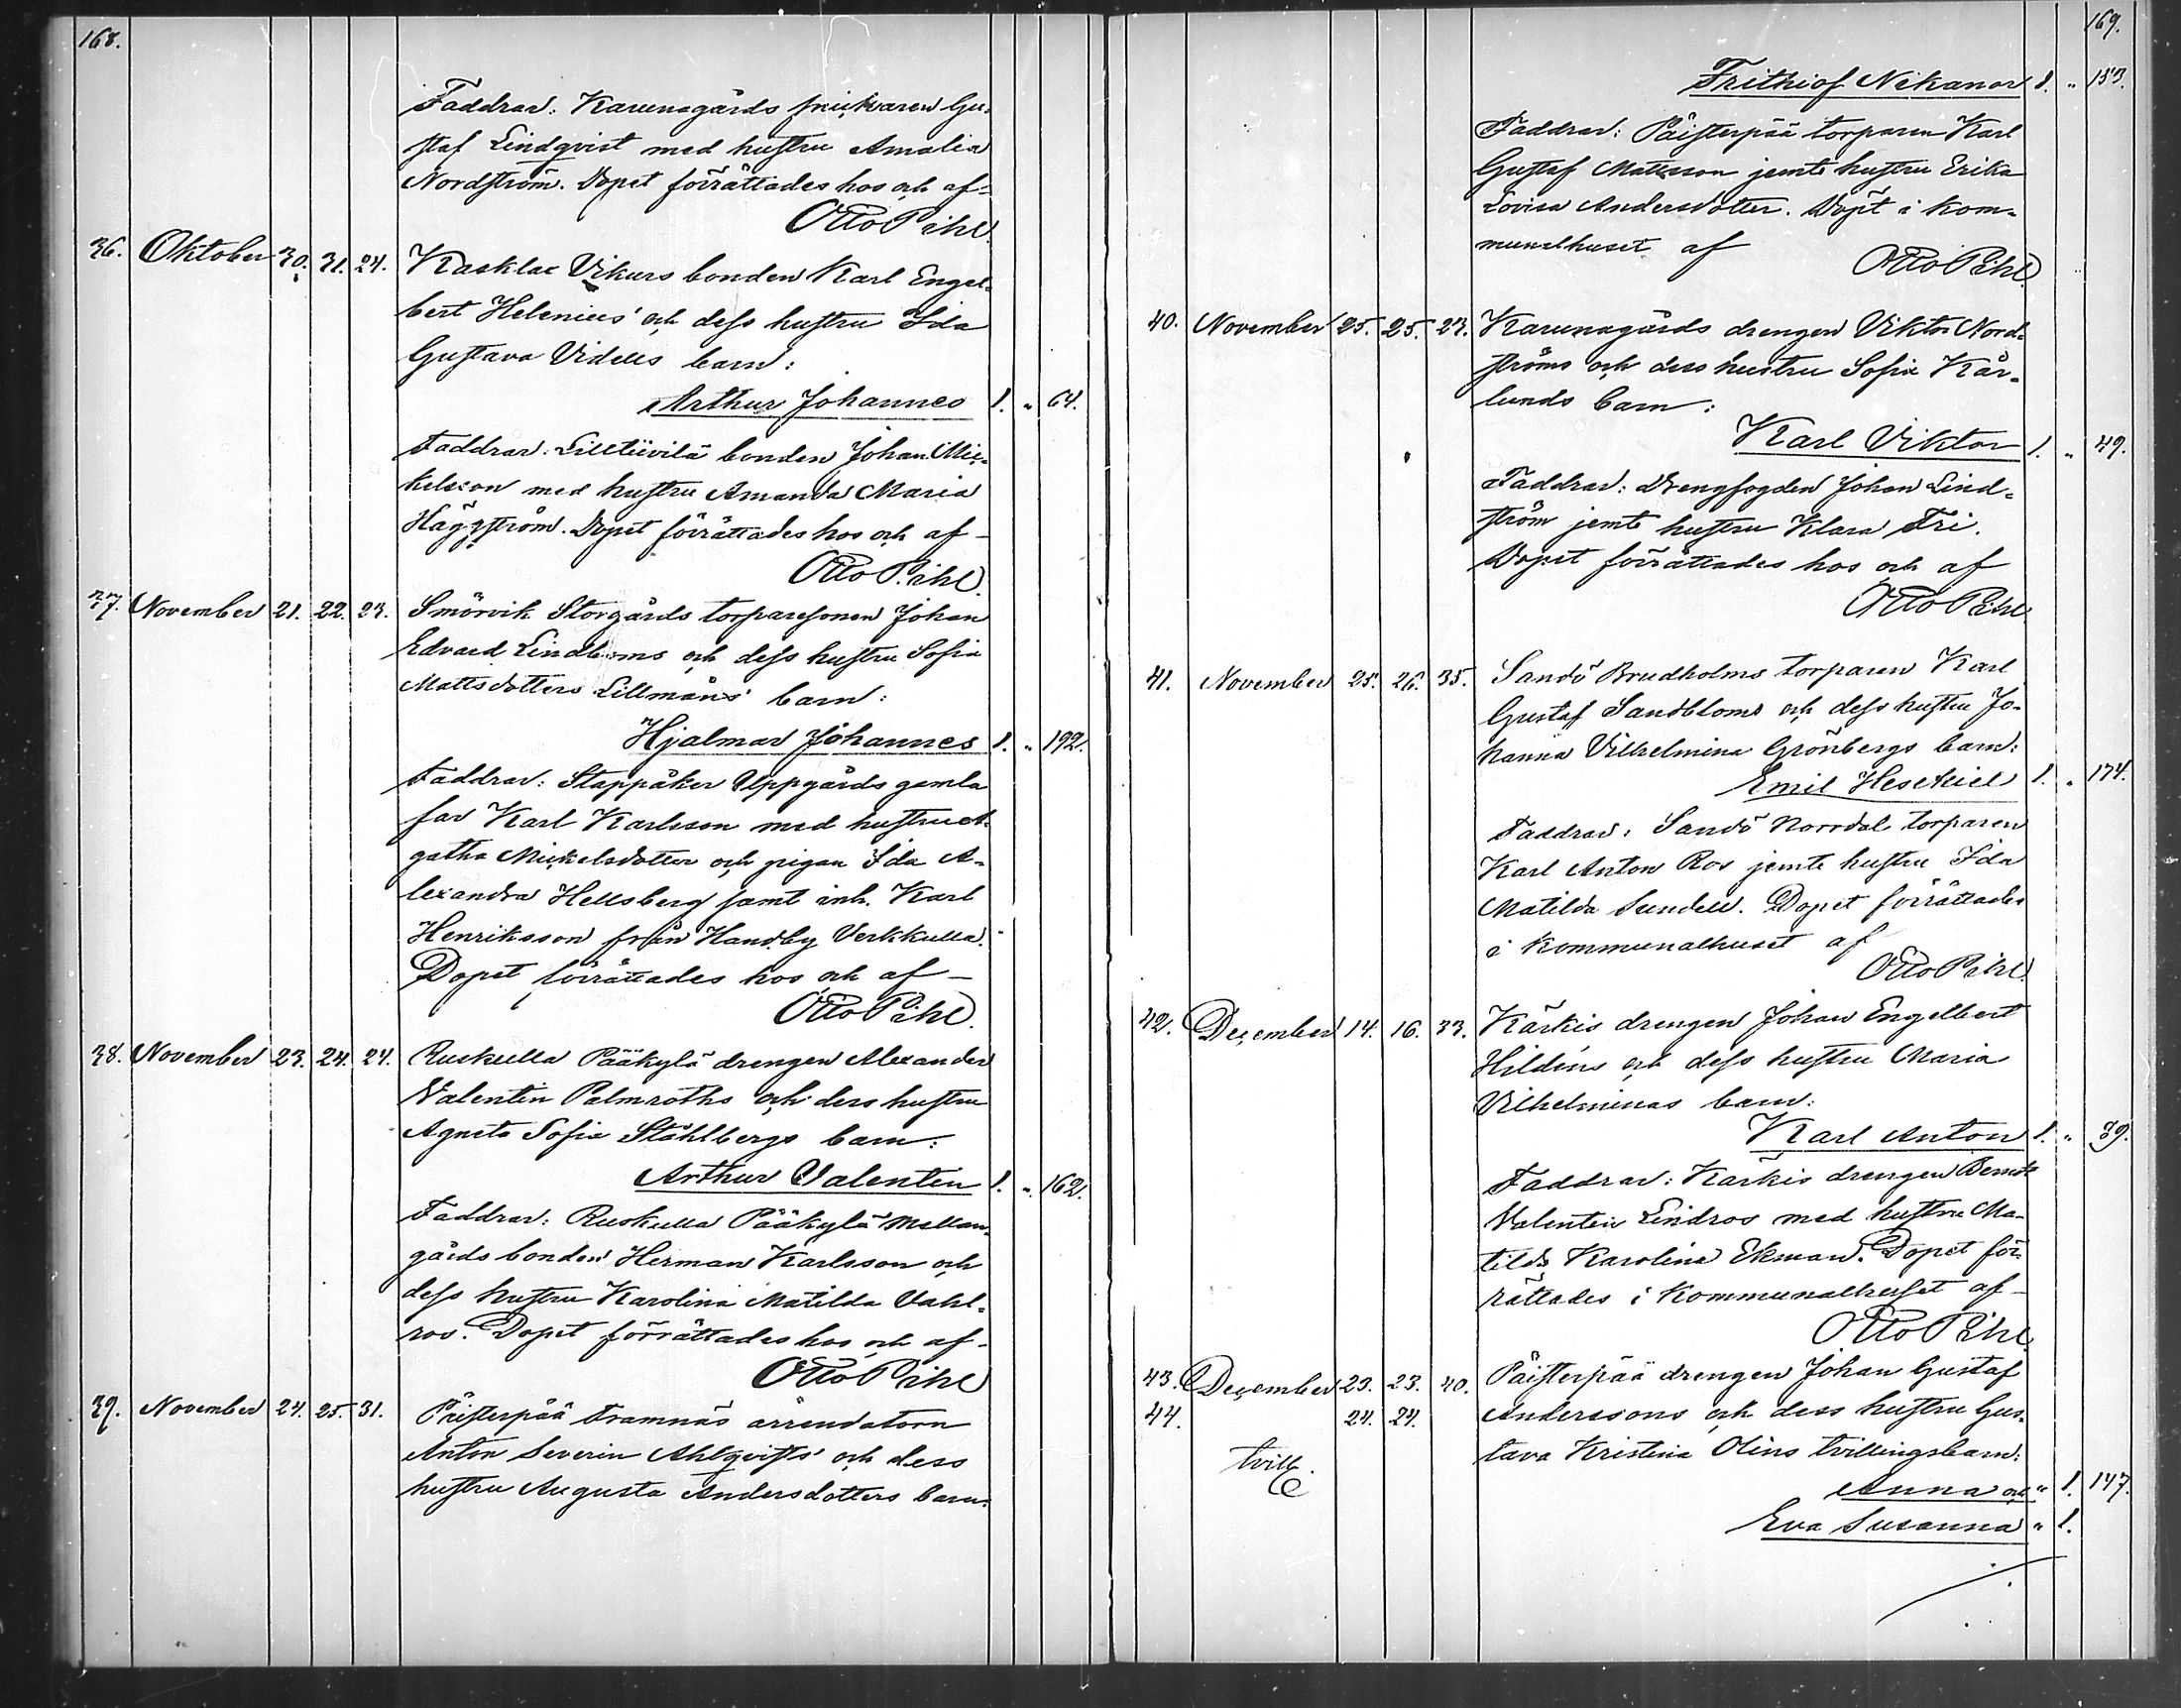 168.
Faddrar: Karunagårds snickaren Gu-
staf Lindqvist med hustru Amalia
Nordström. Dopet förrättades hos och af-
Otto Pihl.
36. Oktober 30. 31. 24. Kasklax Vikurs bonden Karl Engel-
bert Helenius' och dess hustru Ida
Gustava Vidells barn:
Arthur Johannes 1. " 64.
Faddrar: Lilltiivilä bonden Johan Mic-
kelsson med hustru Amanda Maria
Häggström. Dopet förrättades hos och af-
Otto Pihl.
37. November 21. 22. 23. Smörvik Storgårds torparesonen Johan
Edvard Lindboms och dess hustru Sofia
Mattsdotters Lillmäns' barn:
Hjalmar Johannes 1. " 192.
Faddrar: Stappåker Uppgårds gamla
far Karl Karlsson med hustru A-
gatha Mickelsdotter och pigan Ida A-
lexandra Hellsberg samt inh. Karl
Henriksson från Handby Verkkulla.
Dopet förrättades hos och af-
Otto Pihl.
38. November 23. 24. 24. Ruskulla Pääkylä drengen Alexander
Valentin Palmroths och dess hustru
Agneta Sofia Ståhlbergs barn:
Arthur Valentin 1. " 162.
Faddrar: Ruskulla Pääkylä Mellan-
gårds bonden Herman Karlsson och
dess hustru Karolina Matilda Vahl-
ros. Dopet förrättades hos och af-
Otto Pihl
39. November 24. 25. 31. Päisterpää Framnäs arrendatorn
Anton Severin Ahlqvists' och dess
hustru Augusta Andersdotters barn:
169.
Frithiof Nikanor 1. " 153.
Faddrar: Päisterpää torparen Karl
Gustaf Mattsson jemte hustru Erika
Lovisa Andersdotter. Döpt i kom-
munalhuset af
Otto Pihl
40. November 25. 25. 23. Karunagårds drengen Viktor Nord-
ströms och dess hustru Sofia Kår-
lunds barn:
Karl Viktor 1. " 49.
Faddrar: Drengfogden Johan Lind-
ström jemte hustru Klara Fri.
Dopet förrättades hos och af
Otto Pihl
41. November 25. 26. 35. Sandö Brudholms torparen Karl
Gustaf Sandbloms och dess hustru Jo-
hanna Vilhelmina Grönbergs barn:
Emil Hesekiel 1. " 174.
Faddrar: Sandö Norrdal torparen
Karl Anton Ros jemte hustru Ida
Matilda Sundell. Dopet förrättades
i kommunalhuset af
Otto Pihl.
42. December 14. 16. 33. Kärkis drengen Johan Engelbert
Hildens och dess hustru Maria
Vilhelminas barn:
Karl Anton 1. " 39.
Faddrar: Kärkis drengen Berndt
Valentin Lindros med hustru Ma-
tilda Karolina Ekman. Dopet för-
rättades i kommunalhuset af-
Otto Pihl
43. December 23. 23. 40. Päisterpää drengen Johan Gustaf
44. 24. 24. Anderssons och dess hustru Gus-
tvill. tava Kristina Olins tvillingsbarn:
Anna och " 1. 147.
Eva Susanna " 1.